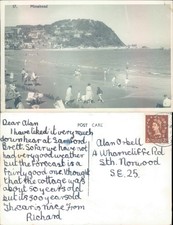 Minehead
POST CARD
Dear Alan
I have liked it very much
down hear at Samford
Brett. So far we have not
had very good weather
but the forecast is a
fairly good one. I thought
that the cottage was
about 50 years old
but its 300 years old
The car is nice. From
Richard
Alan Orbell
4 Wharncliffe Rd
Sth. Norwood
S.E. 25.